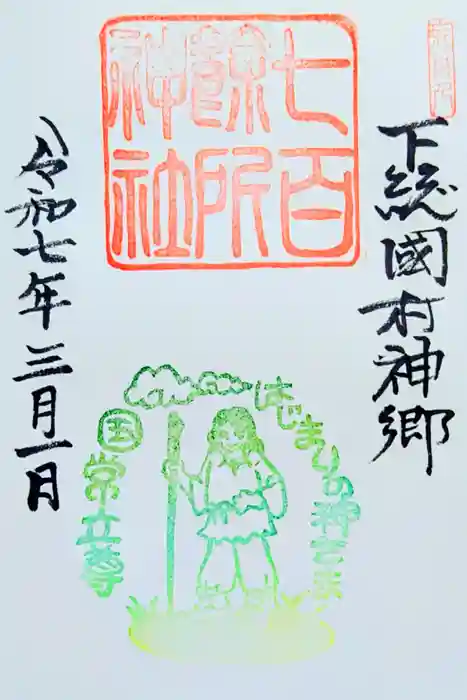 下総國村神郷
七百
餘所
神社
令和七年三月一日
はじまりの神さま
国常立尊